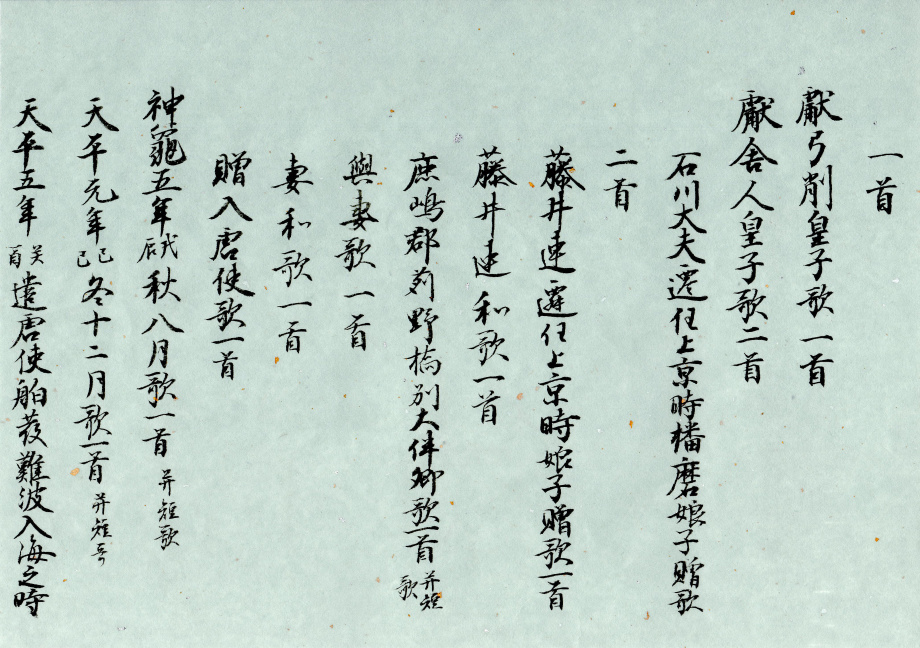 一首
獻弓削皇子歌一首
獻舎人皇子歌二首
石川大夫遷任上京時播磨娘子贈歌
二首
藤井連遷任上京時娘子贈歌一首
藤井連和歌一首
鹿嶋郡苅野橋別大伴卿歌一首并短歌
與妻歌一首
妻和歌一首
贈入唐使歌一首
神龜五年戊辰秋八月歌一首并短歌
天平元年己巳冬十二月歌一首并短哥
天平五年癸酉遣唐使舶發難波入海之時